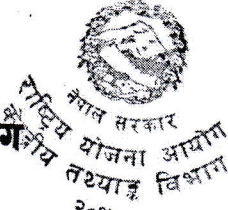 नेपाल सरकार
राष्ट्रिय योजना आयोग
केन्द्रीय तथ्याङ्क विभाग